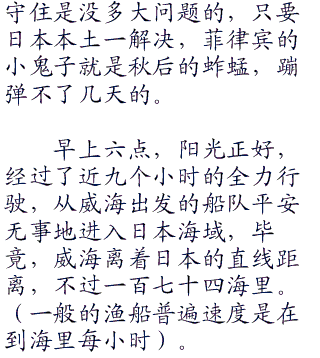 守住是没多大问题的，只要
日本本土一解决，菲律宾的
小鬼子就是秋后的蚱蜢，蹦
弹不了几天的。
早上六点，阳光正好，
经过了近九个小时的全力行
驶，从威海出发的船队平安
无事地进入日本海域，毕
竟，威海离着日本的直线距
离，不过一百七十四海里。
（一般的渔船普遍速度是在
到海里每小时）。